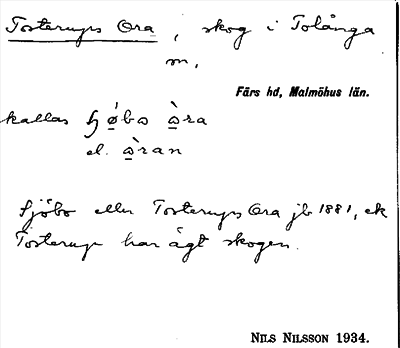 Tosterups Ora, skog i Tolånga
sn,
Färs hd, Malmöhus län.
kallas ʃǿbo àra
el. àran
Sjöbo eller Tosterups Ora jb 1881, ek
Tosterup har ägt skogen.
NILS NILSSON 1934.